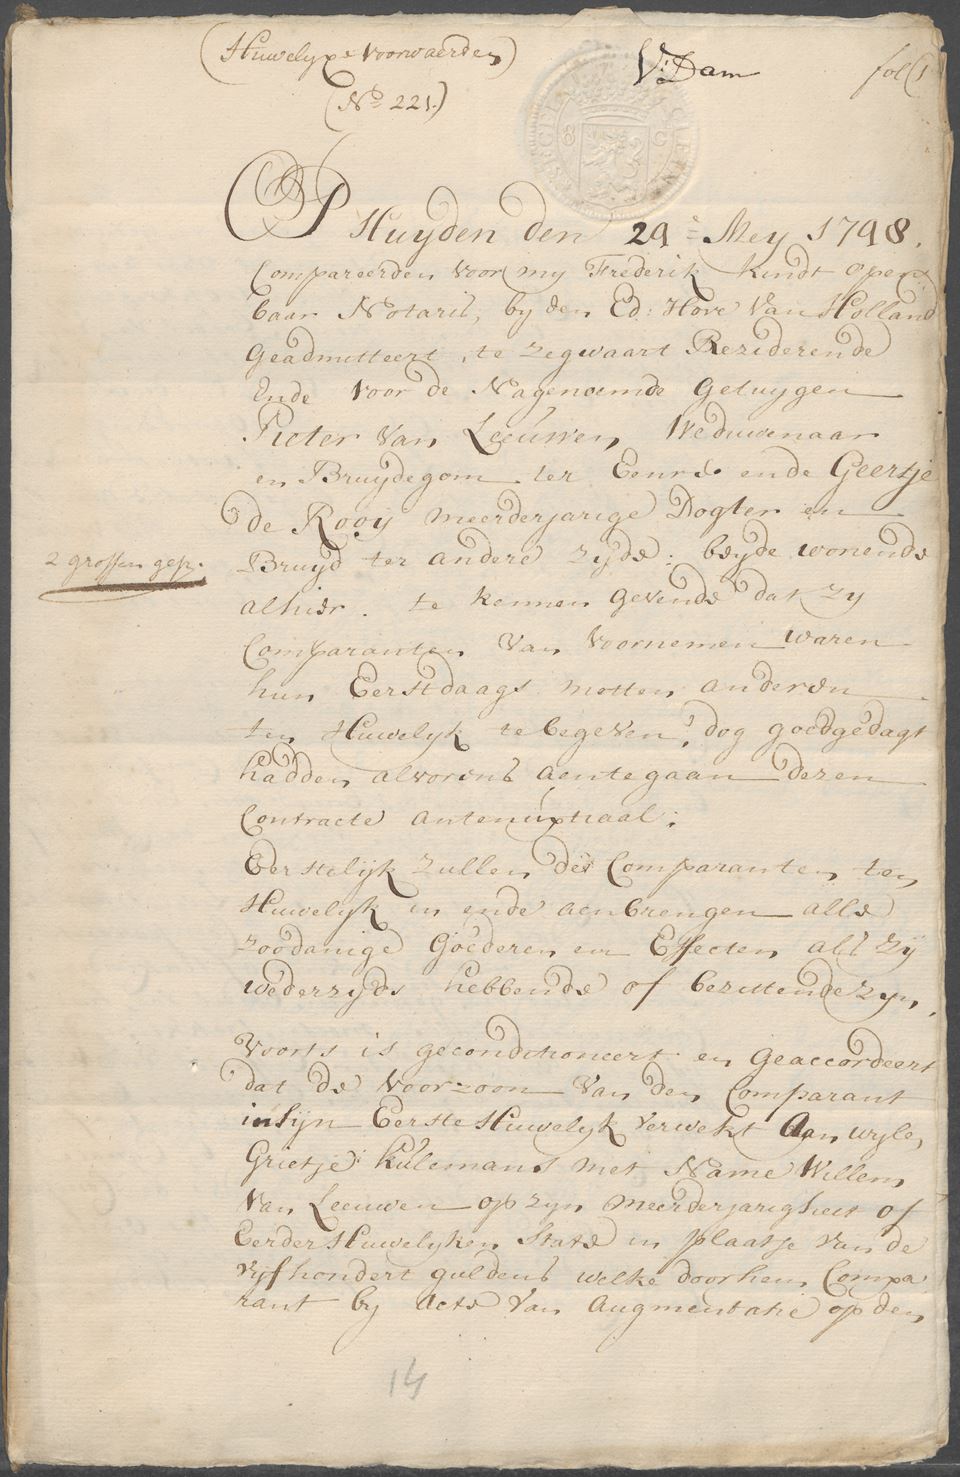 (Huwelyxe Voorwaerden)
V: Dam
fol(1
(No 221.)
Op Huyden den 29e Mey 1798.
Compareerden voor my Frederik Kindt open
baar Notaris, by den Ed: Hove van Holland
Geadmitteert, te Zegwaart Rezideerende
Ende voor de Nagenoemde Getuygen
Pieter van Leeuwen, Weduwenaar
en Bruydegom ter Eenre ende Geertje
de Rooij meerderjarige Dogter en
2 grossen gesz.
Bruyd ter andere zyde: beyde wonende
alhier. te kennen gevende dat zy
Comparanten van voornemen waren
hun Eerstdaags metten anderen
ten Huwelyk te begeven, dog goedgedagt
hadden alvorens aentegaan dezen
Contracte antenuptiaal:
Eerstelijk zullen de Comparanten ten
Huwelyk in ende aenbrengen alle
zoodanige Goederen en Effecten als zij
wederzyds hebbende of bezittende zyn,
Voorts is geconditioneert en geaccordeert
dat de voorzoon van den Comparant
in sijn Eerste Huwelyk verwekt Aan wyle
Grietje Kulemans met Name Willem
van Leeuwen op zyn meerderjarigheit of
Eerder Huwelyken State in plaatse van de
vyfhondert guldens welke door hem Compa
rant by acte van Augmentatie op den
14